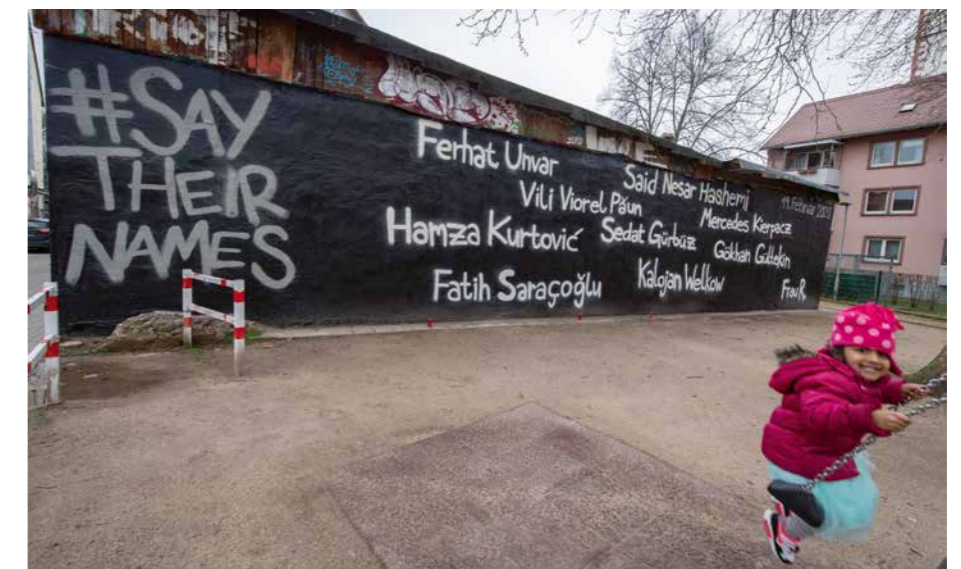 #SAY
THEIR
NAMES
Ferhat Unvar
Said Nesar Hashemi
19. Februar 2020
Vili Viorel Păun
Mercedes Kierpacz
Hamza Kurtović
Sedat Gürbüz
Gökhan Gültekin
Fatih Saraçoğlu
Kalojan Welkow
Frau R.